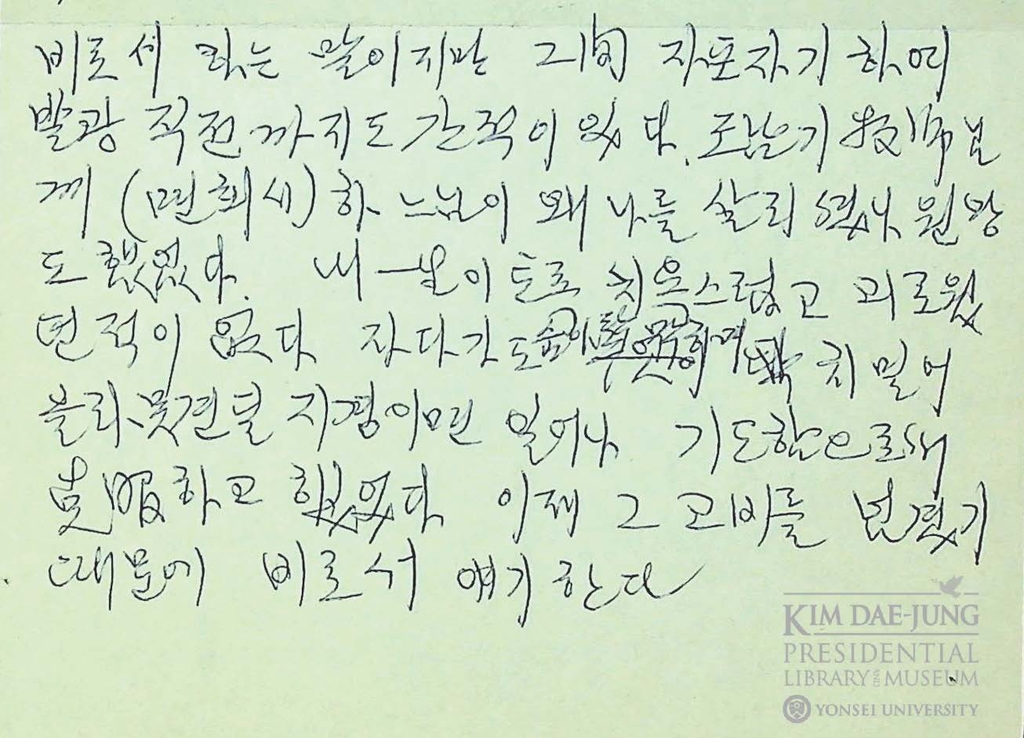 비로서 하는 말이지만 그間 자포자기 하여
발광 직전까지도 간적이 있다. 조남기 牧師님
께 (면회시) 하느님이 왜 나를 살리셨나 원망
도 했었다. 내 一生이 토록 치욕스럽고 괴로웠
던적이 없다 자다가도 숨이 하며 치밀어
올라 못견딜 지경이면 일어나 기도함으로써
克服하고 했었다 이제 그 고비를 넘겼기
때문에 비로서 얘기한다
KIM DAE-JUNG
PRESIDENTIAL
LIBRARY AND MUSEUM
YONSEI UNIVERSITY